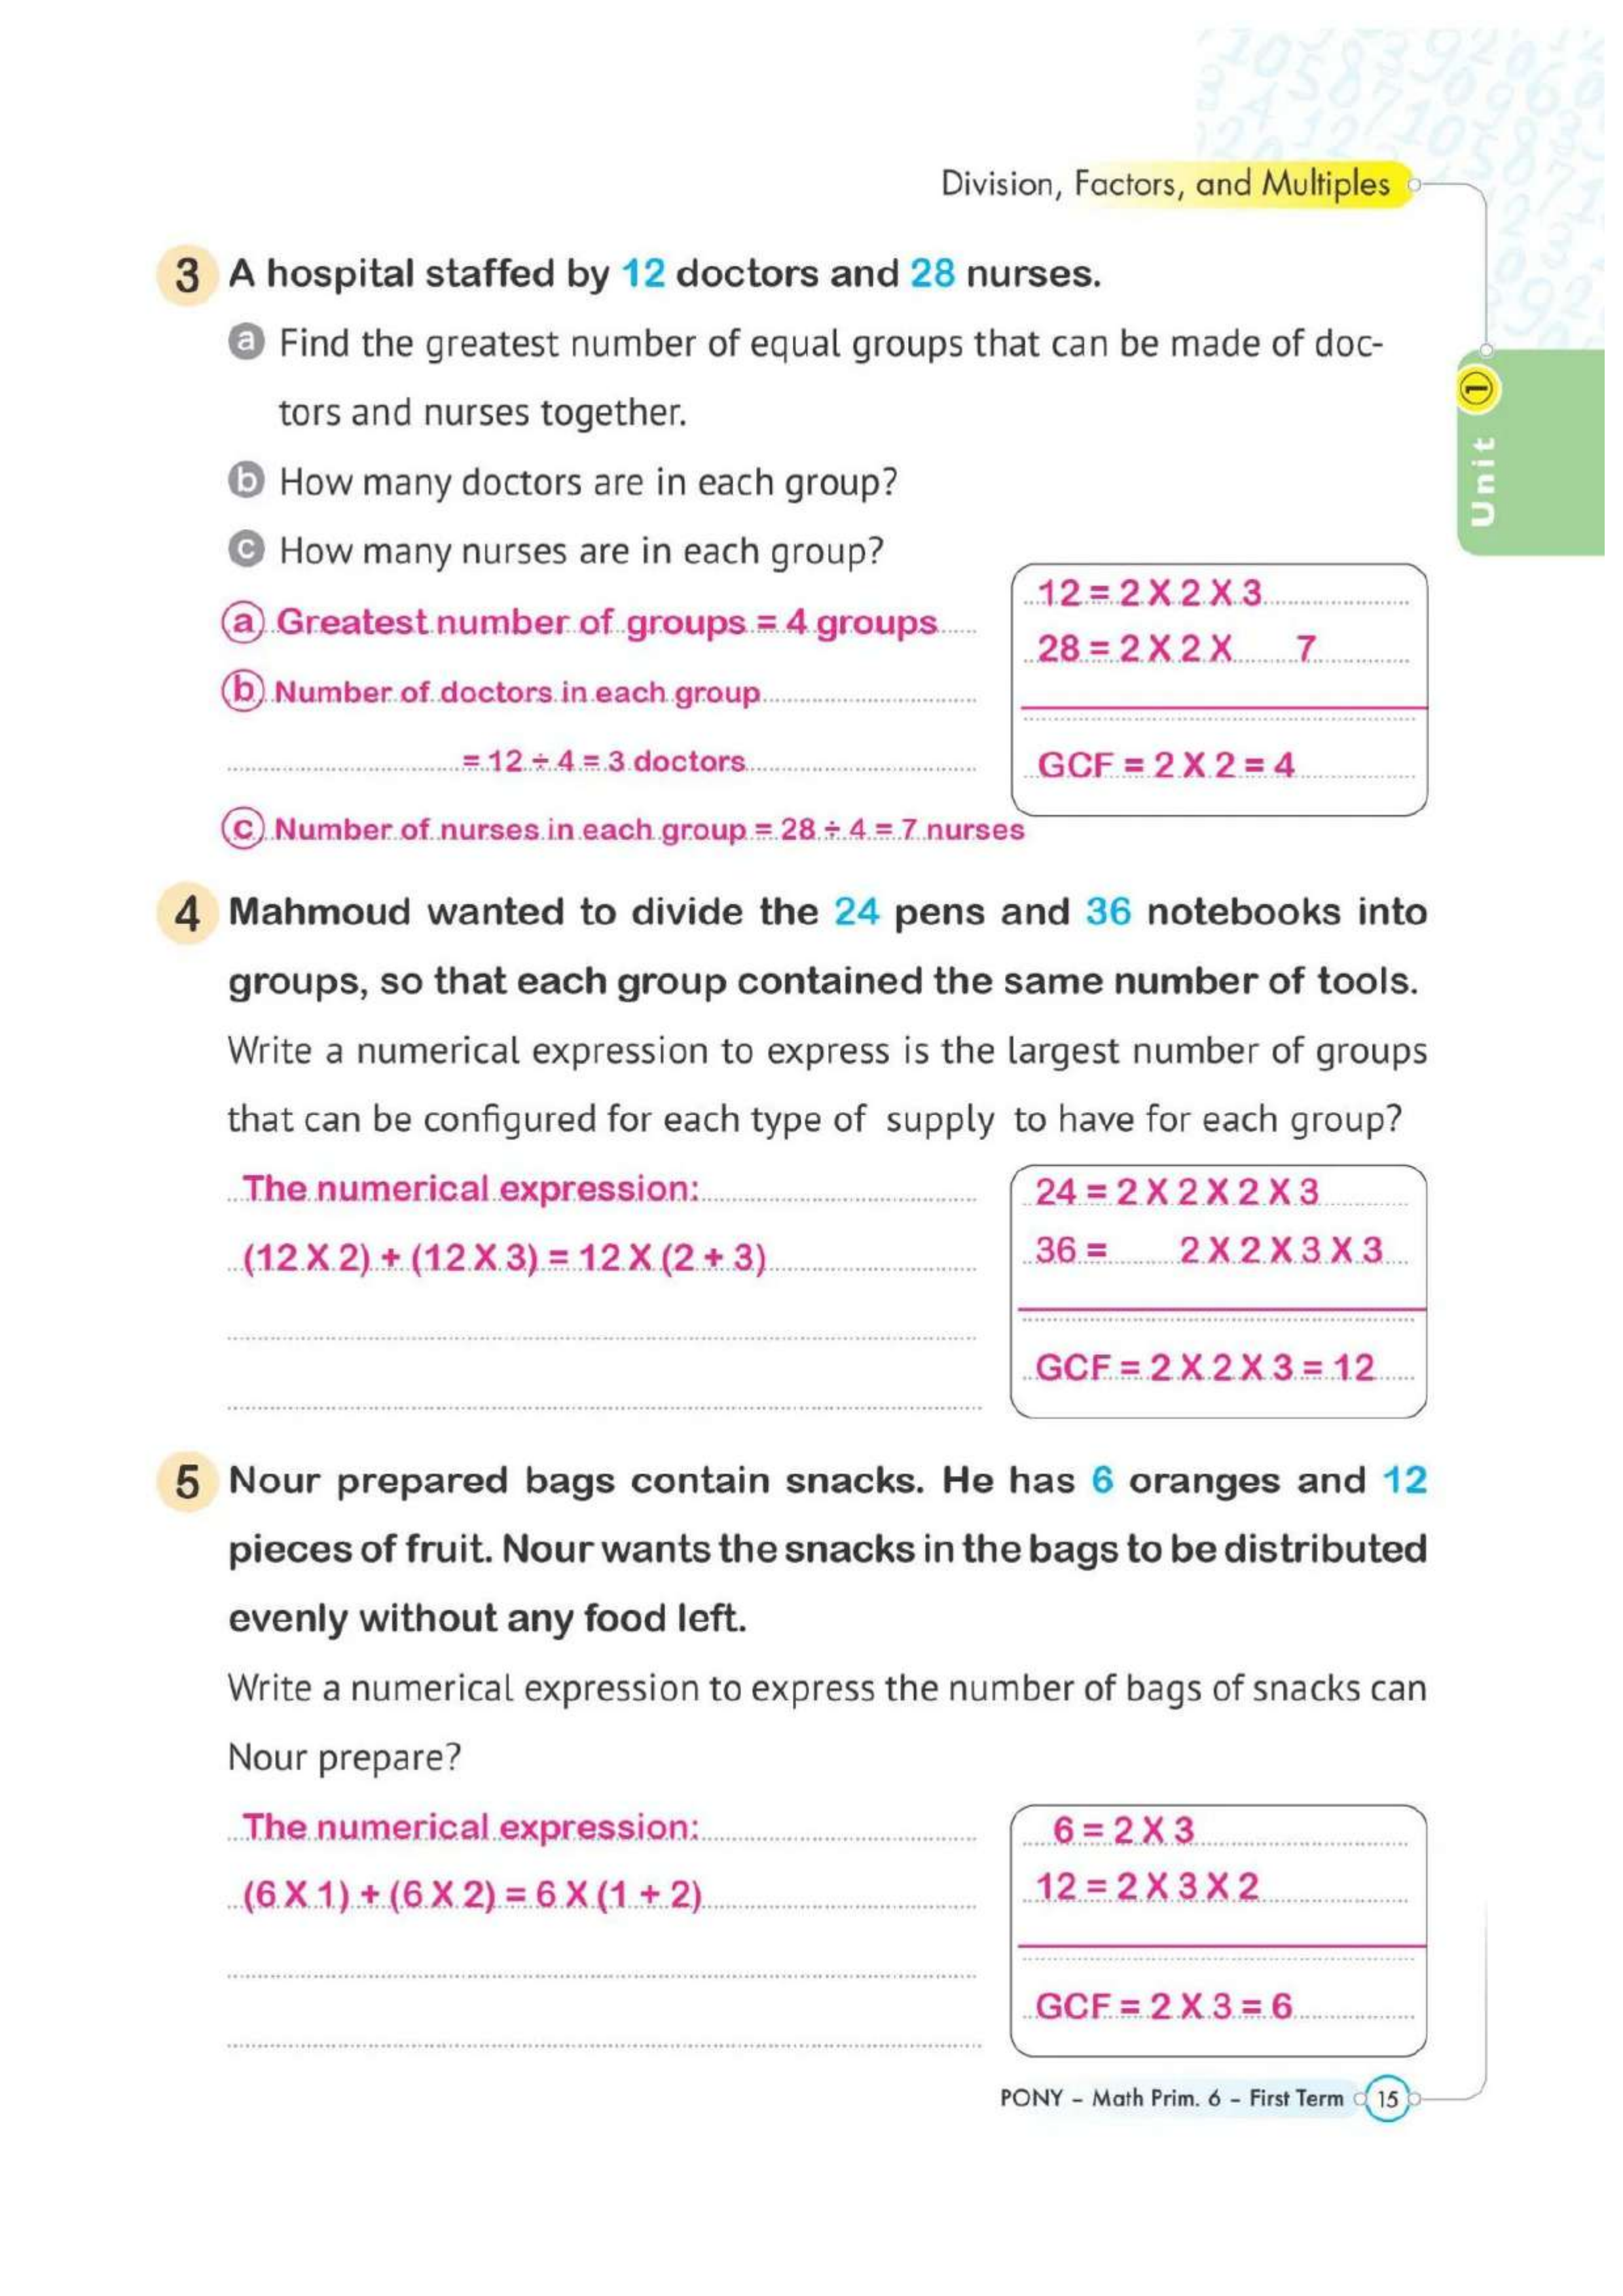 Division, Factors, and Multiples
Unit 1
3 A hospital staffed by 12 doctors and 28 nurses.
a Find the greatest number of equal groups that can be made of doc-
tors and nurses together.
b How many doctors are in each group?
c How many nurses are in each group?
a Greatest number of groups = 4 groups
b Number of doctors in each group
= 12 ÷ 4 = 3 doctors
c Number of nurses in each group = 28 ÷ 4 = 7 nurses
12 = 2 X 2 X 3
28 = 2 X 2 X 7
GCF = 2 X 2 = 4
4 Mahmoud wanted to divide the 24 pens and 36 notebooks into
groups, so that each group contained the same number of tools.
Write a numerical expression to express is the largest number of groups
that can be configured for each type of supply to have for each group?
The numerical expression:
(12 X 2) + (12 X 3) = 12 X (2 + 3)
24 = 2 X 2 X 2 X 3
36 = 2 X 2 X 3 X 3
GCF = 2 X 2 X 3 = 12
5 Nour prepared bags contain snacks. He has 6 oranges and 12
pieces of fruit. Nour wants the snacks in the bags to be distributed
evenly without any food left.
Write a numerical expression to express the number of bags of snacks can
Nour prepare?
The numerical expression:
(6 X 1) + (6 X 2) = 6 X (1 + 2)
6 = 2 X 3
12 = 2 X 3 X 2
GCF = 2 X 3 = 6
PONY - Math Prim. 6 - First Term 15